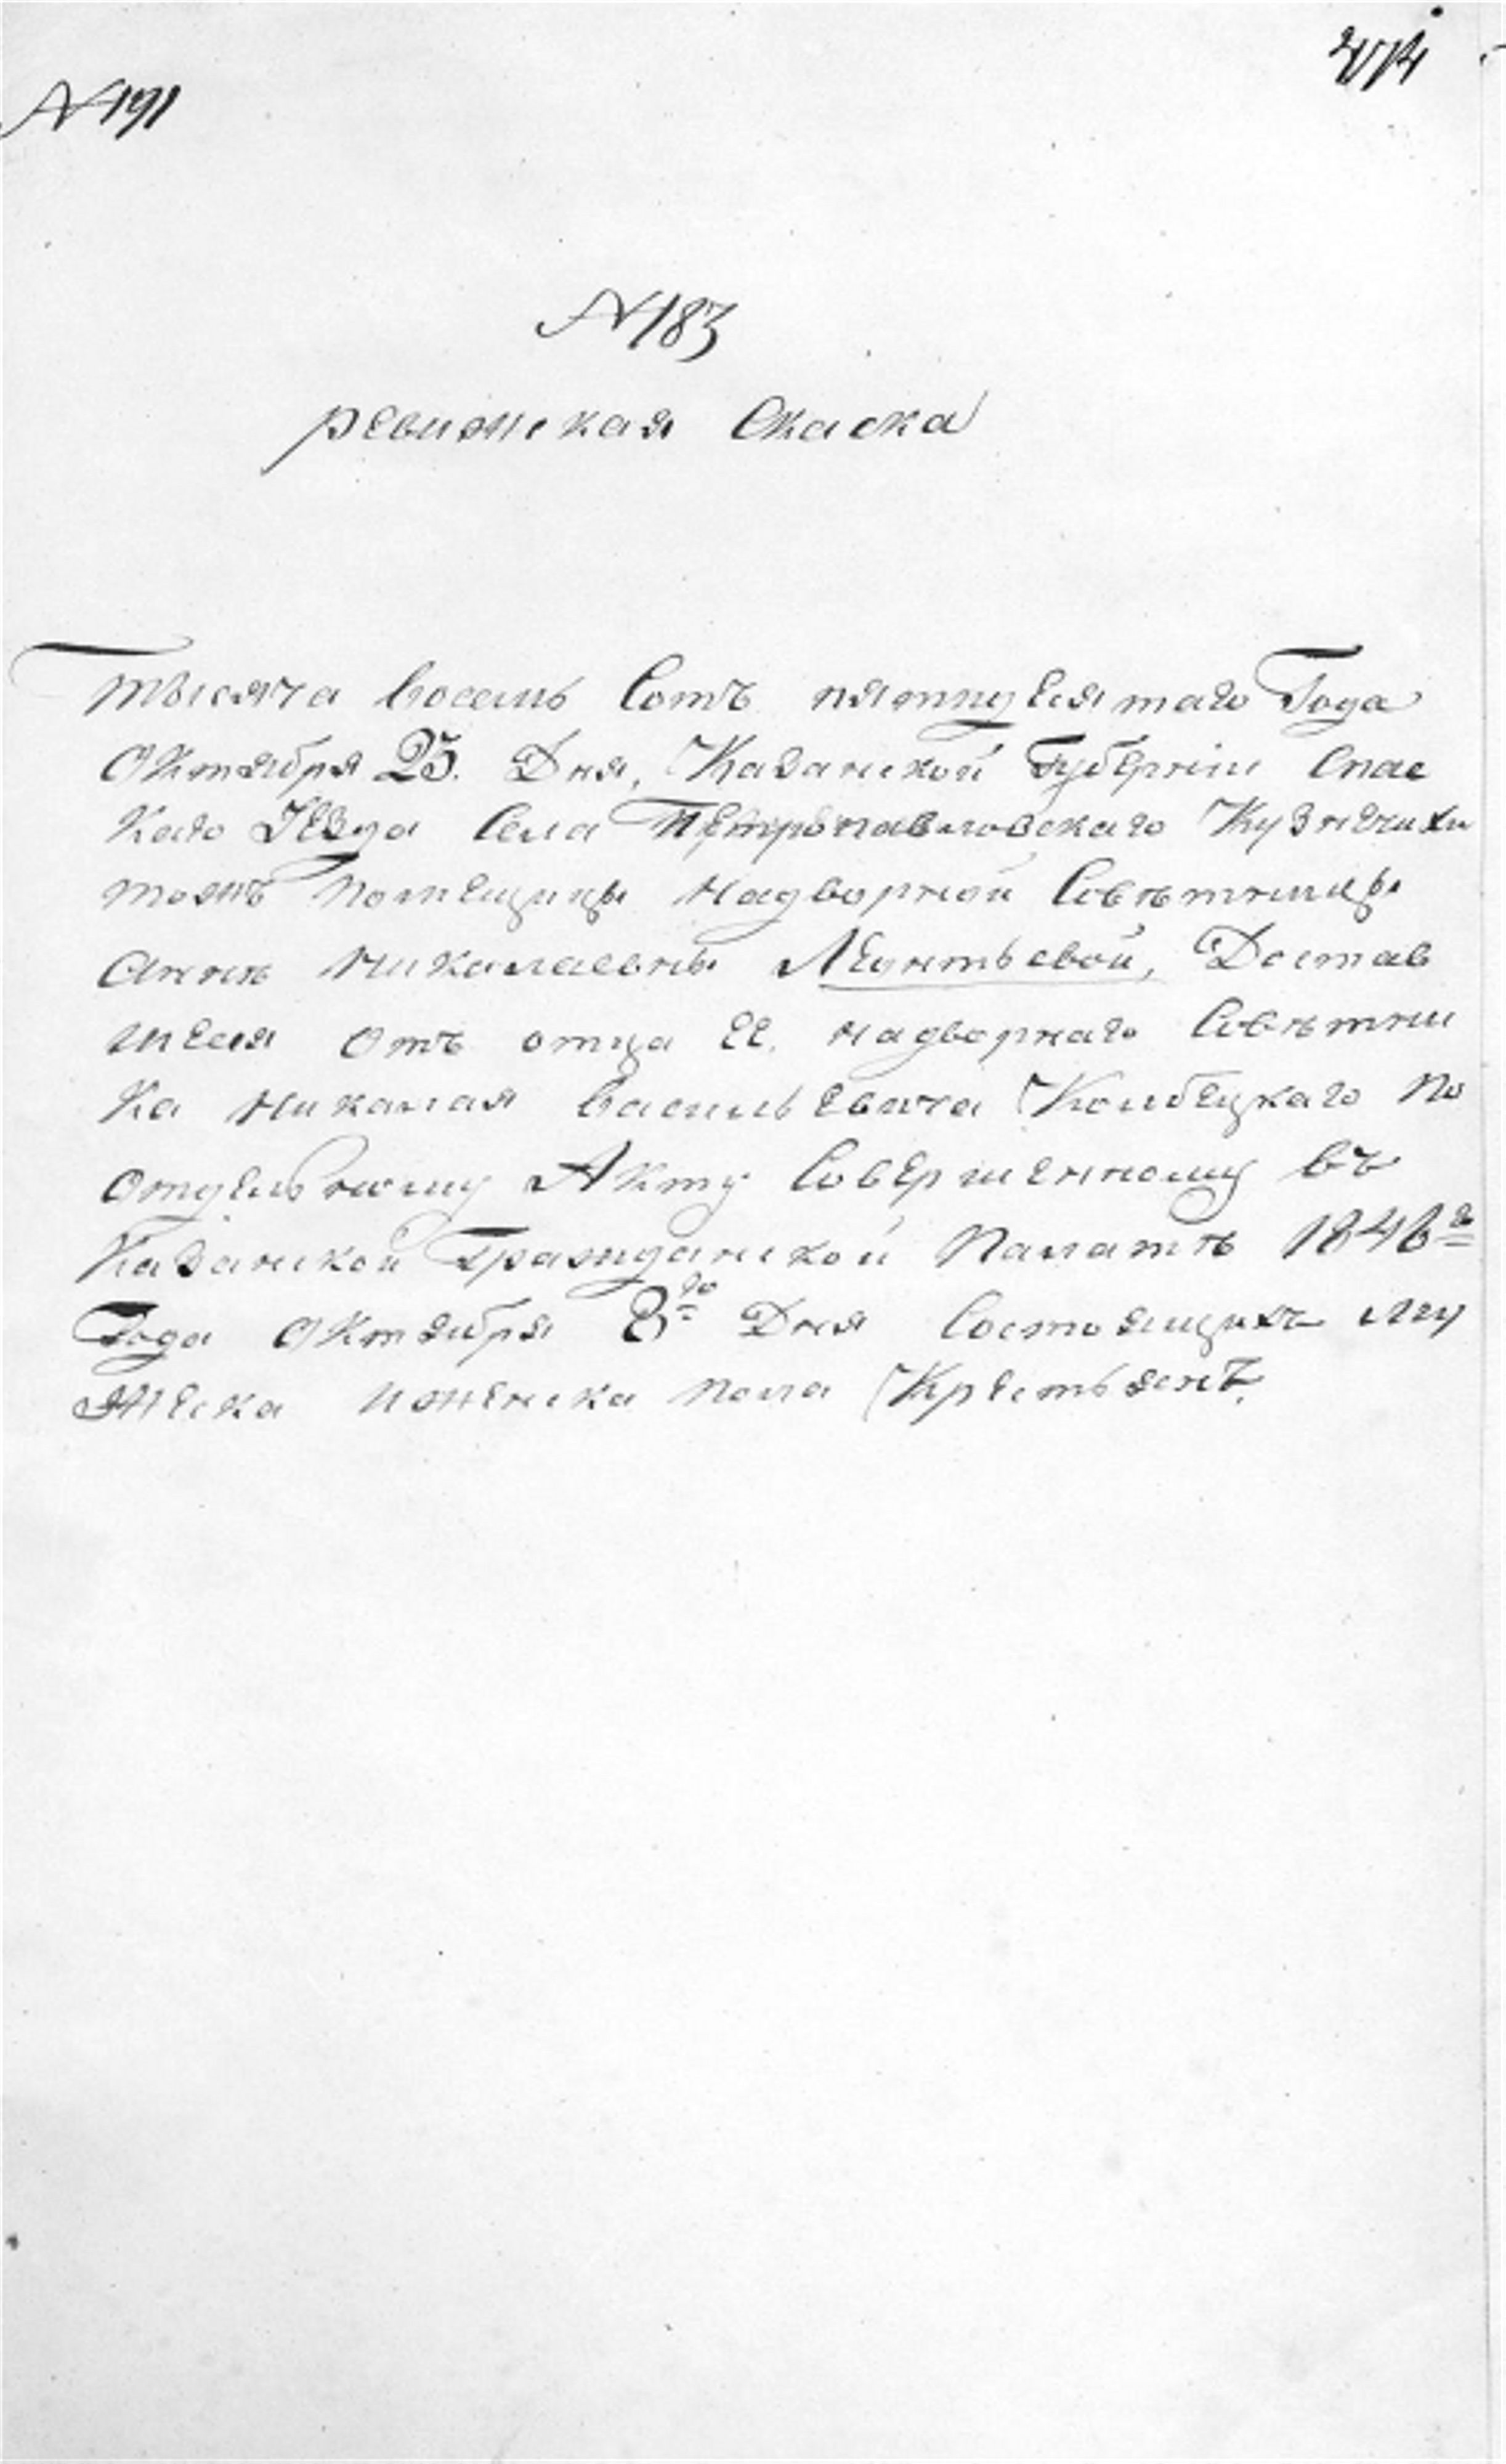 N 191
N 183
ревижская Скаска
тысяча восемь Сотъ пятидесятаго Года
Октября 25. Дня, Казанской Губерніи Спас
каго Уезда Села Петропавловскаго Кузнечихи
тожъ помещицы надворной Советницы
Анне николаевны Леунтьевой, Достав
шеся отъ отца ее. надворнаго Советни
ка николая васильевича по
отдельному Акту Совершенному въ
Казанской Гражданской Палатѣ 1846го
Года Октября 8го Дня Состоящихъ му
жеска иженска пола Крестьянъ.